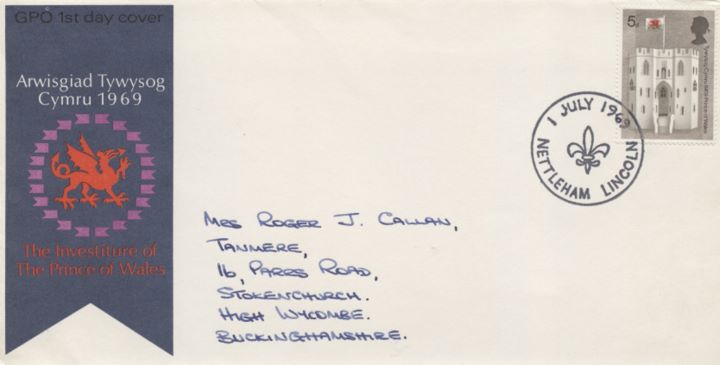 GPO 1st day cover
Arwisgiad Tywysog
Cymru 1969
The Investiture of
The Prince of Wales
5d
1 JULY 1969
NETTLEHAM LINCOLN
MRS ROGER J. CALLAN,
TANMERE,
16, PARRS ROAD,
STOKENCHURCH.
HIGH WYCOMBE.
BUCKINGHAMSHIRE.